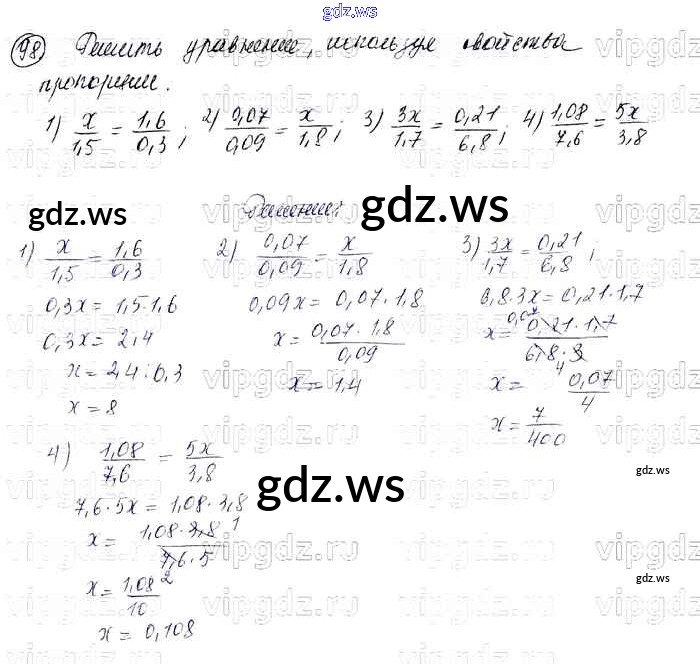 gdz.ws
98) Решить уравнение, используя свойства
пропорции.
1) x/1,5 = 1,6/0,3; 2) 0,07/0,09 = x/1,8; 3) 3x/1,7 = 0,21/6,8; 4) 1,08/7,6 = 5x/3,8
Решение:
1) x/1,5 = 1,6/0,3
0,3x = 1,5·1,6
0,3x = 2,4
x = 2,4:0,3
x = 8
2) 0,07/0,09 = x/1,8
0,09x = 0,07·1,8
x = 0,07·1,8/0,09
x = 1,4
3) 3x/1,7 = 0,21/6,8;
6,8·3x = 0,21·1,7
x = 0,21·1,7/6,8·3
x = 0,07/4
x = 7/400
4) 1,08/7,6 = 5x/3,8
7,6·5x = 1,08·3,8
x = 1,08·3,8/7,6·5
x = 1,08/10
x = 0,108
gdz.ws
gdz.ws
gdz.ws
gdz.ws
gdz.ws
vipgdz.ru